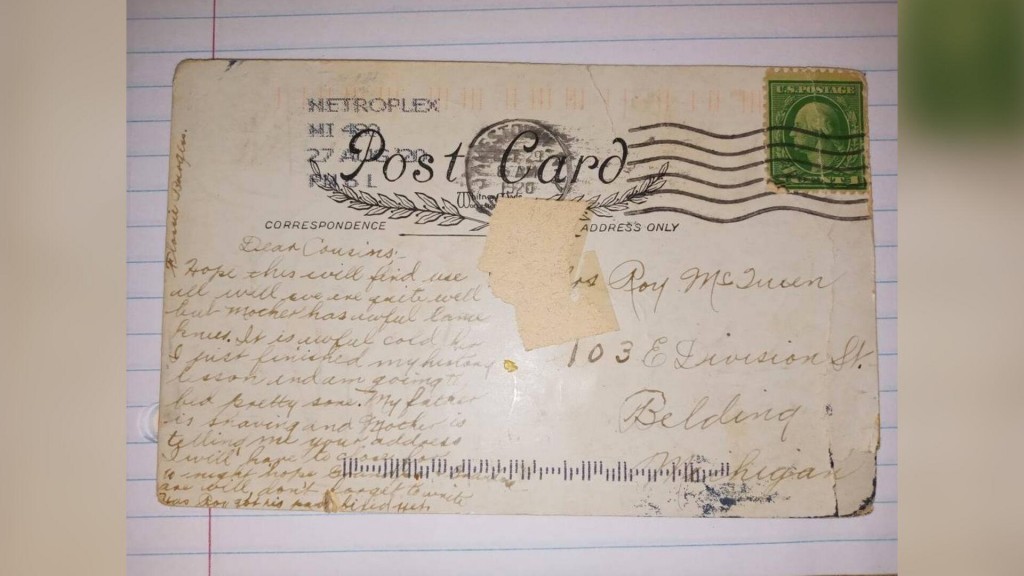 METROPLEX
MI 480
27 AUG '20
PM 8 L
Post Card
1920
U.S. POSTAGE
CORRESPONDENCE
ADDRESS ONLY
Dear Cousins:-
Hope this will find use
all well we are quite well
but mother has awful lame
knees. It is awful cold
I just finished my history
lesson and am going to
bed pretty soon. My father
is shaving and Mother is
telling me your address
I will have to close
night hope
are well don't forget to write
Has Roy got his pants
Mrs Roy McQueen
103 E Division St.
Belding
Michigan